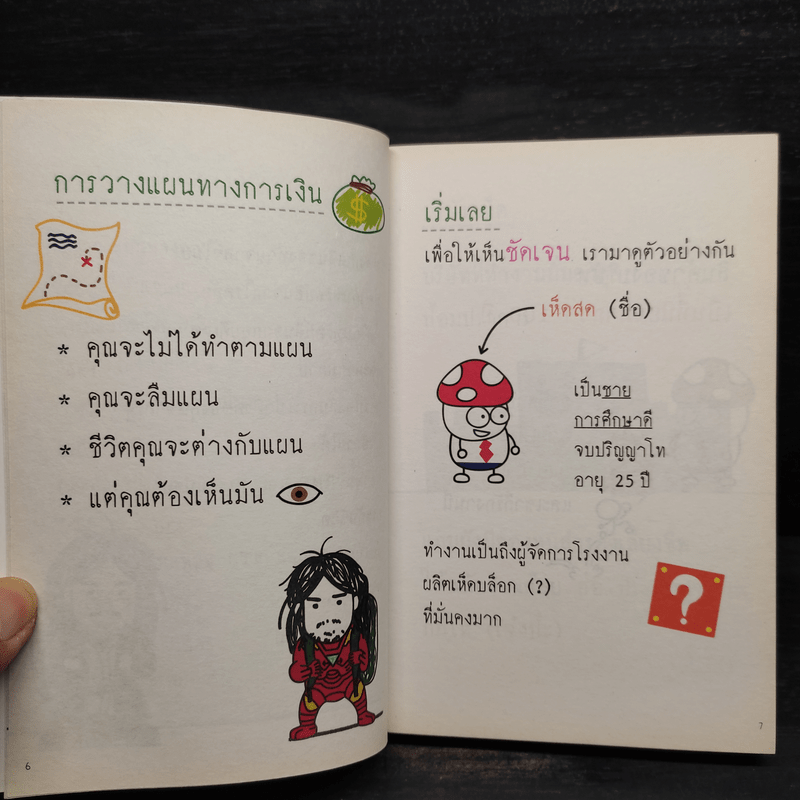 การวางแผนทางการเงิน
$
* คุณจะไม่ได้ทำตามแผน
* คุณจะลืมแผน
* ชีวิตคุณจะต่างกับแผน
* แต่คุณต้องเห็นมัน
6
เริ่มเลย
เพื่อให้เห็นชัดเจน เรามาดูตัวอย่างกัน
เห็ดสด (ชื่อ)
เป็นชาย
การศึกษาดี
จบปริญญาโท
อายุ 25 ปี
ทำงานเป็นถึงผู้จัดการโรงงาน
ผลิตเห็ดบล็อก (?)
ที่มั่นคงมาก
?
7